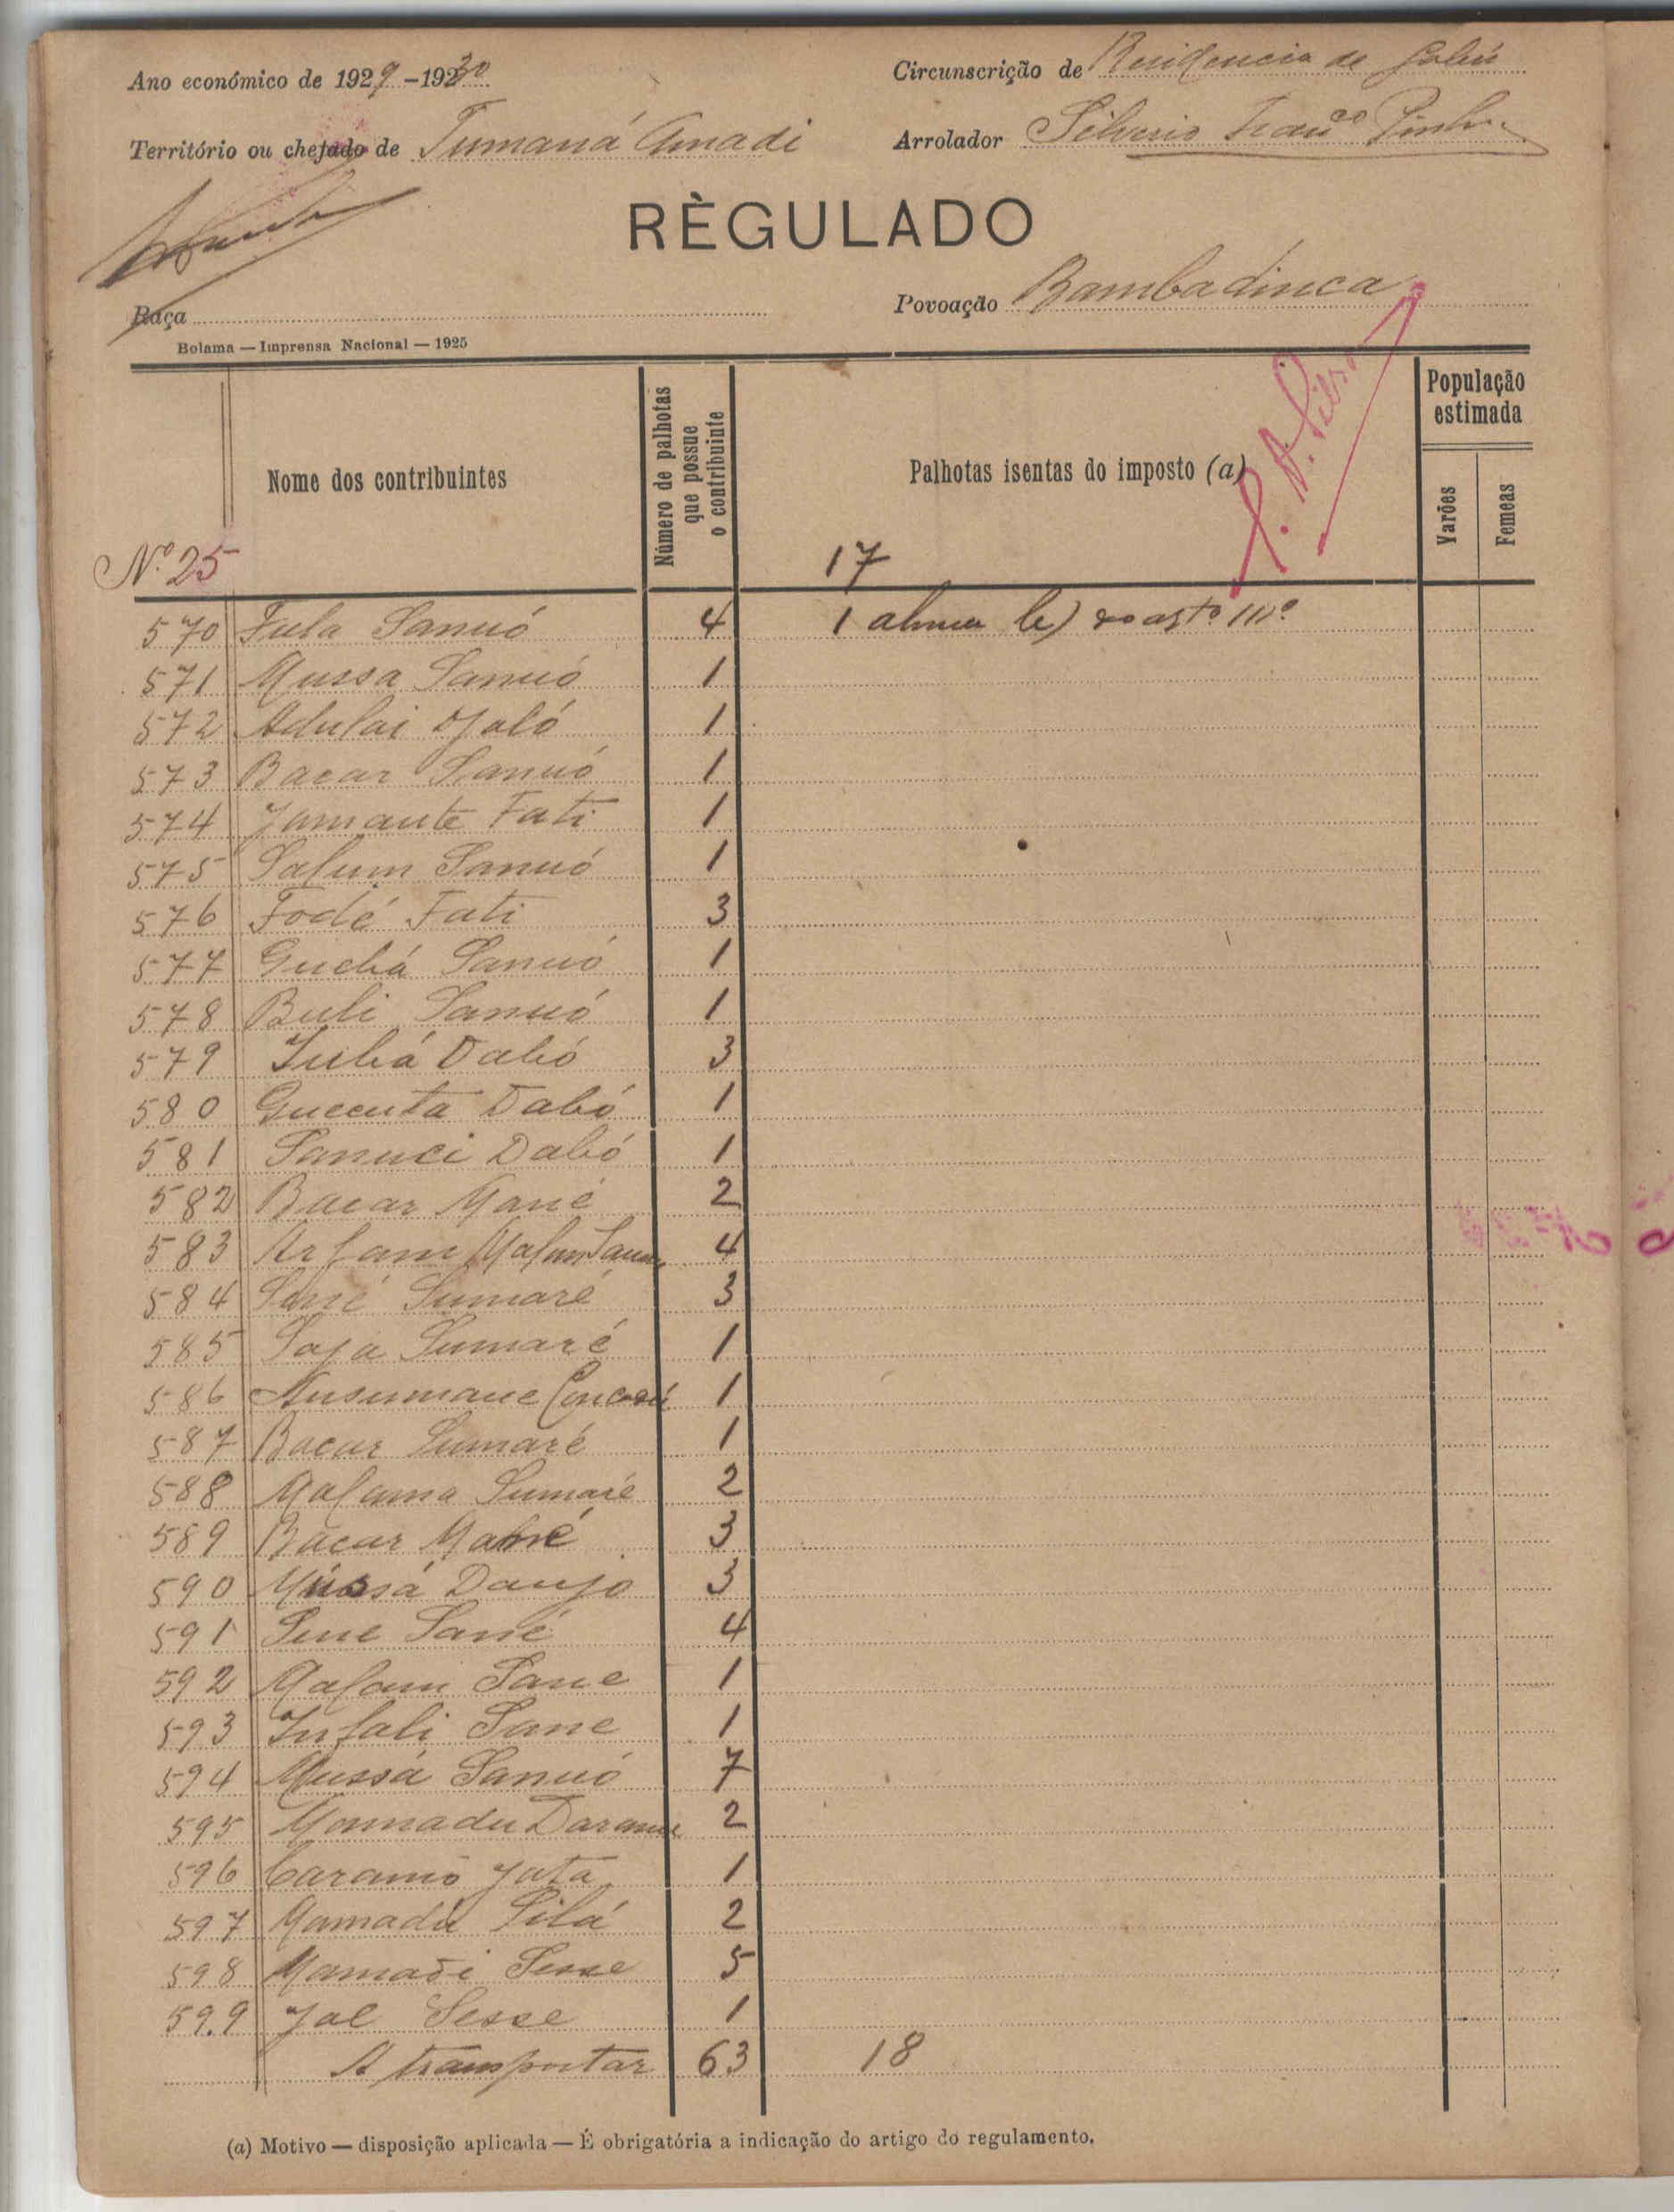 Ano económico de 1929-1930
Circunscrição de Residencia de Gabú
Território ou chefado de Tumaná Amadi
Arrolador Silverio Franco Pinho
RÈGULADO
Raça
Povoação Bambadinca
Bolama — Imprensa Nacional — 1925
Nome dos contribuintes
Número de palhotas que possue o contribuinte
Palhotas isentas do imposto (a)
População estimada
Varões
Femeas
Nº 25
17
570 Fula Sanuó 4 1
571 Mussa Sanuó 1
572 Adulai Djaló 1
573 Bacar Sanuó 1
574 Jamante Fati 1
575 Salum Sanuó 1
576 Fodé Fati 3
577 Guebá Sanuó 1
578 Buli Sanuó 1
579 Jubá Dabó 3
580 Queeuta Dabó 1
581 Sanuci Dabó 1
582 Bacar Mané 2
583 Arfam Malam 4
584 Sané Sumaré 3
585 Sumaré 1
586 1
587 Bacar Sumaré 1
588 Malama Sumaré 2
589 Bacar Mané 3
590 Mussá Danjo 3
591 Sene Sané 4
592 Malam Sane 1
593 Infali Sane 1
594 Mussá Sanuó 7
595 Mamadu Darame 2
596 Caramó Jata 1
597 Mamadú Silá 2
598 Mamadi Sesse 5
599 Jal Sesse 1
A transportar 63 18
(a) Motivo — disposição aplicada — É obrigatória a indicação do artigo do regulamento.